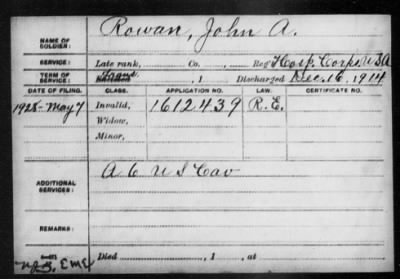 Rowan, John A.
NAME OF SOLDIER:
SERVICE: Late rank, Co., Reg't Hosp. Corps, U.S.A
TERM OF SERVICE: , 1 Discharged Dec. 16, 1914
DATE OF FILING. CLASS. APPLICATION NO. LAW. CERTIFICATE NO.
1928-May 7 Invalid, 1612439 R.E.
Widow,
Minor,
ADDITIONAL SERVICES: A 6 U S Cav
REMARKS:
Died , 1 , at